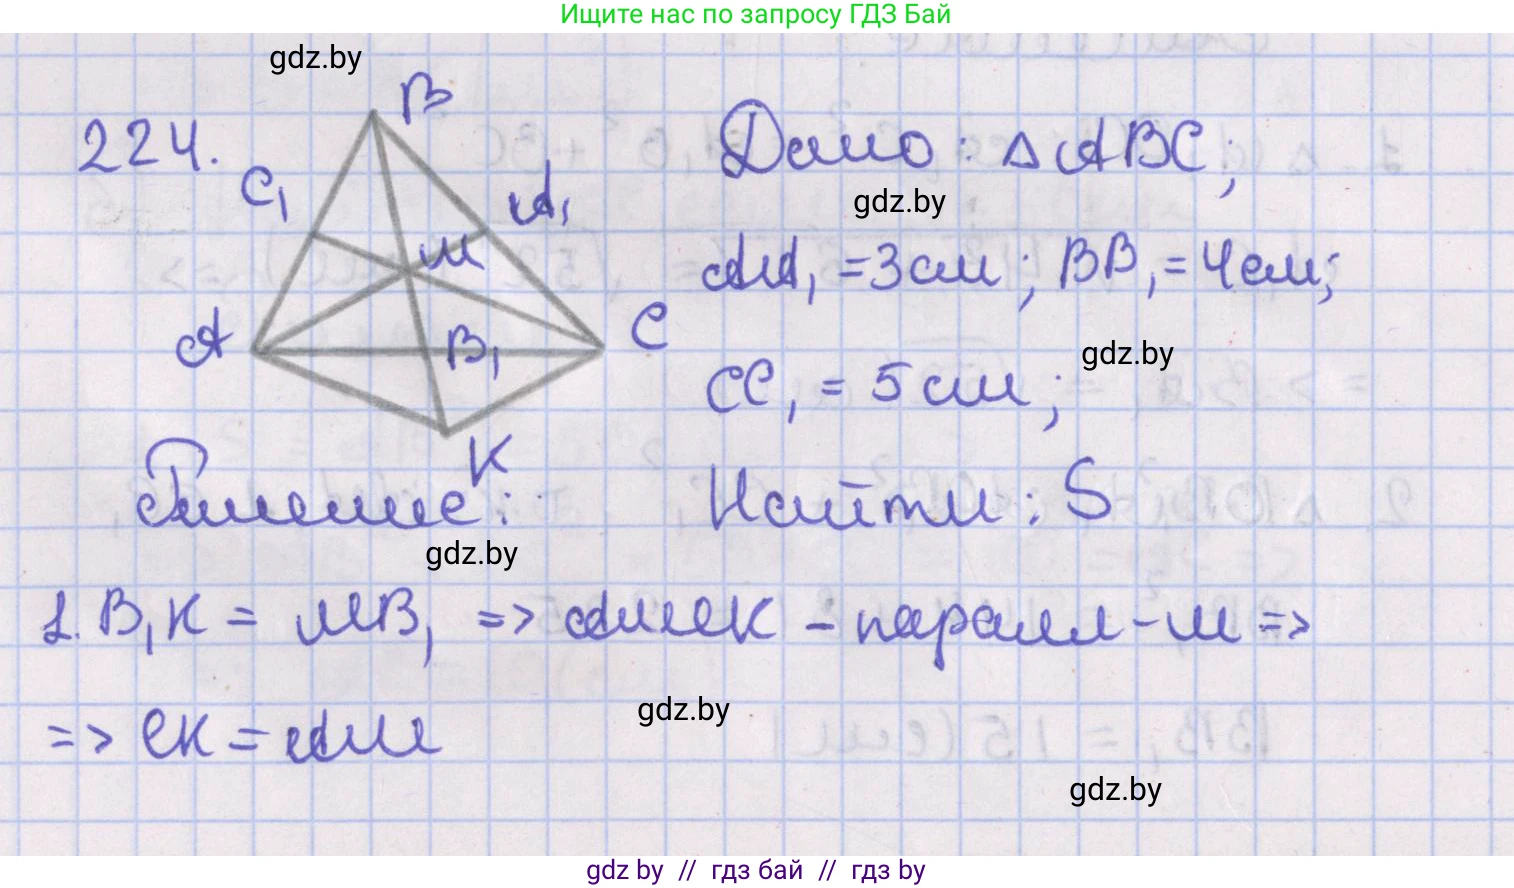 Ищите нас по запросу ГДЗ Бай
gdz.by
224.
B
C₁
A₁
M
A
B₁
C
K
Дано: △ABC;
gdz.by
AA₁ = 3см; BB₁ = 4см;
gdz.by
CC₁ = 5см;
Решение:
Найти: S
gdz.by
1. B₁K = MB₁ => AMCK - паралл-м =>
gdz.by
=> CK = AM
gdz.by
gdz by // гдз бай // гдз by